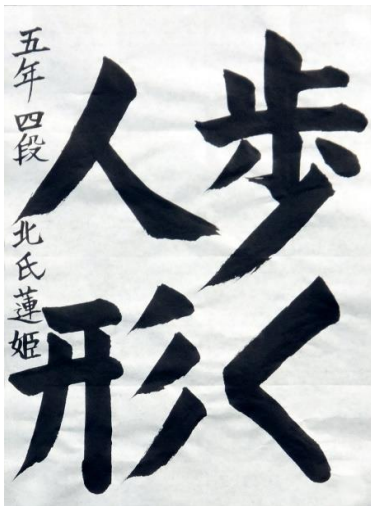 歩く
人形
五年 四段 北氏蓮姫